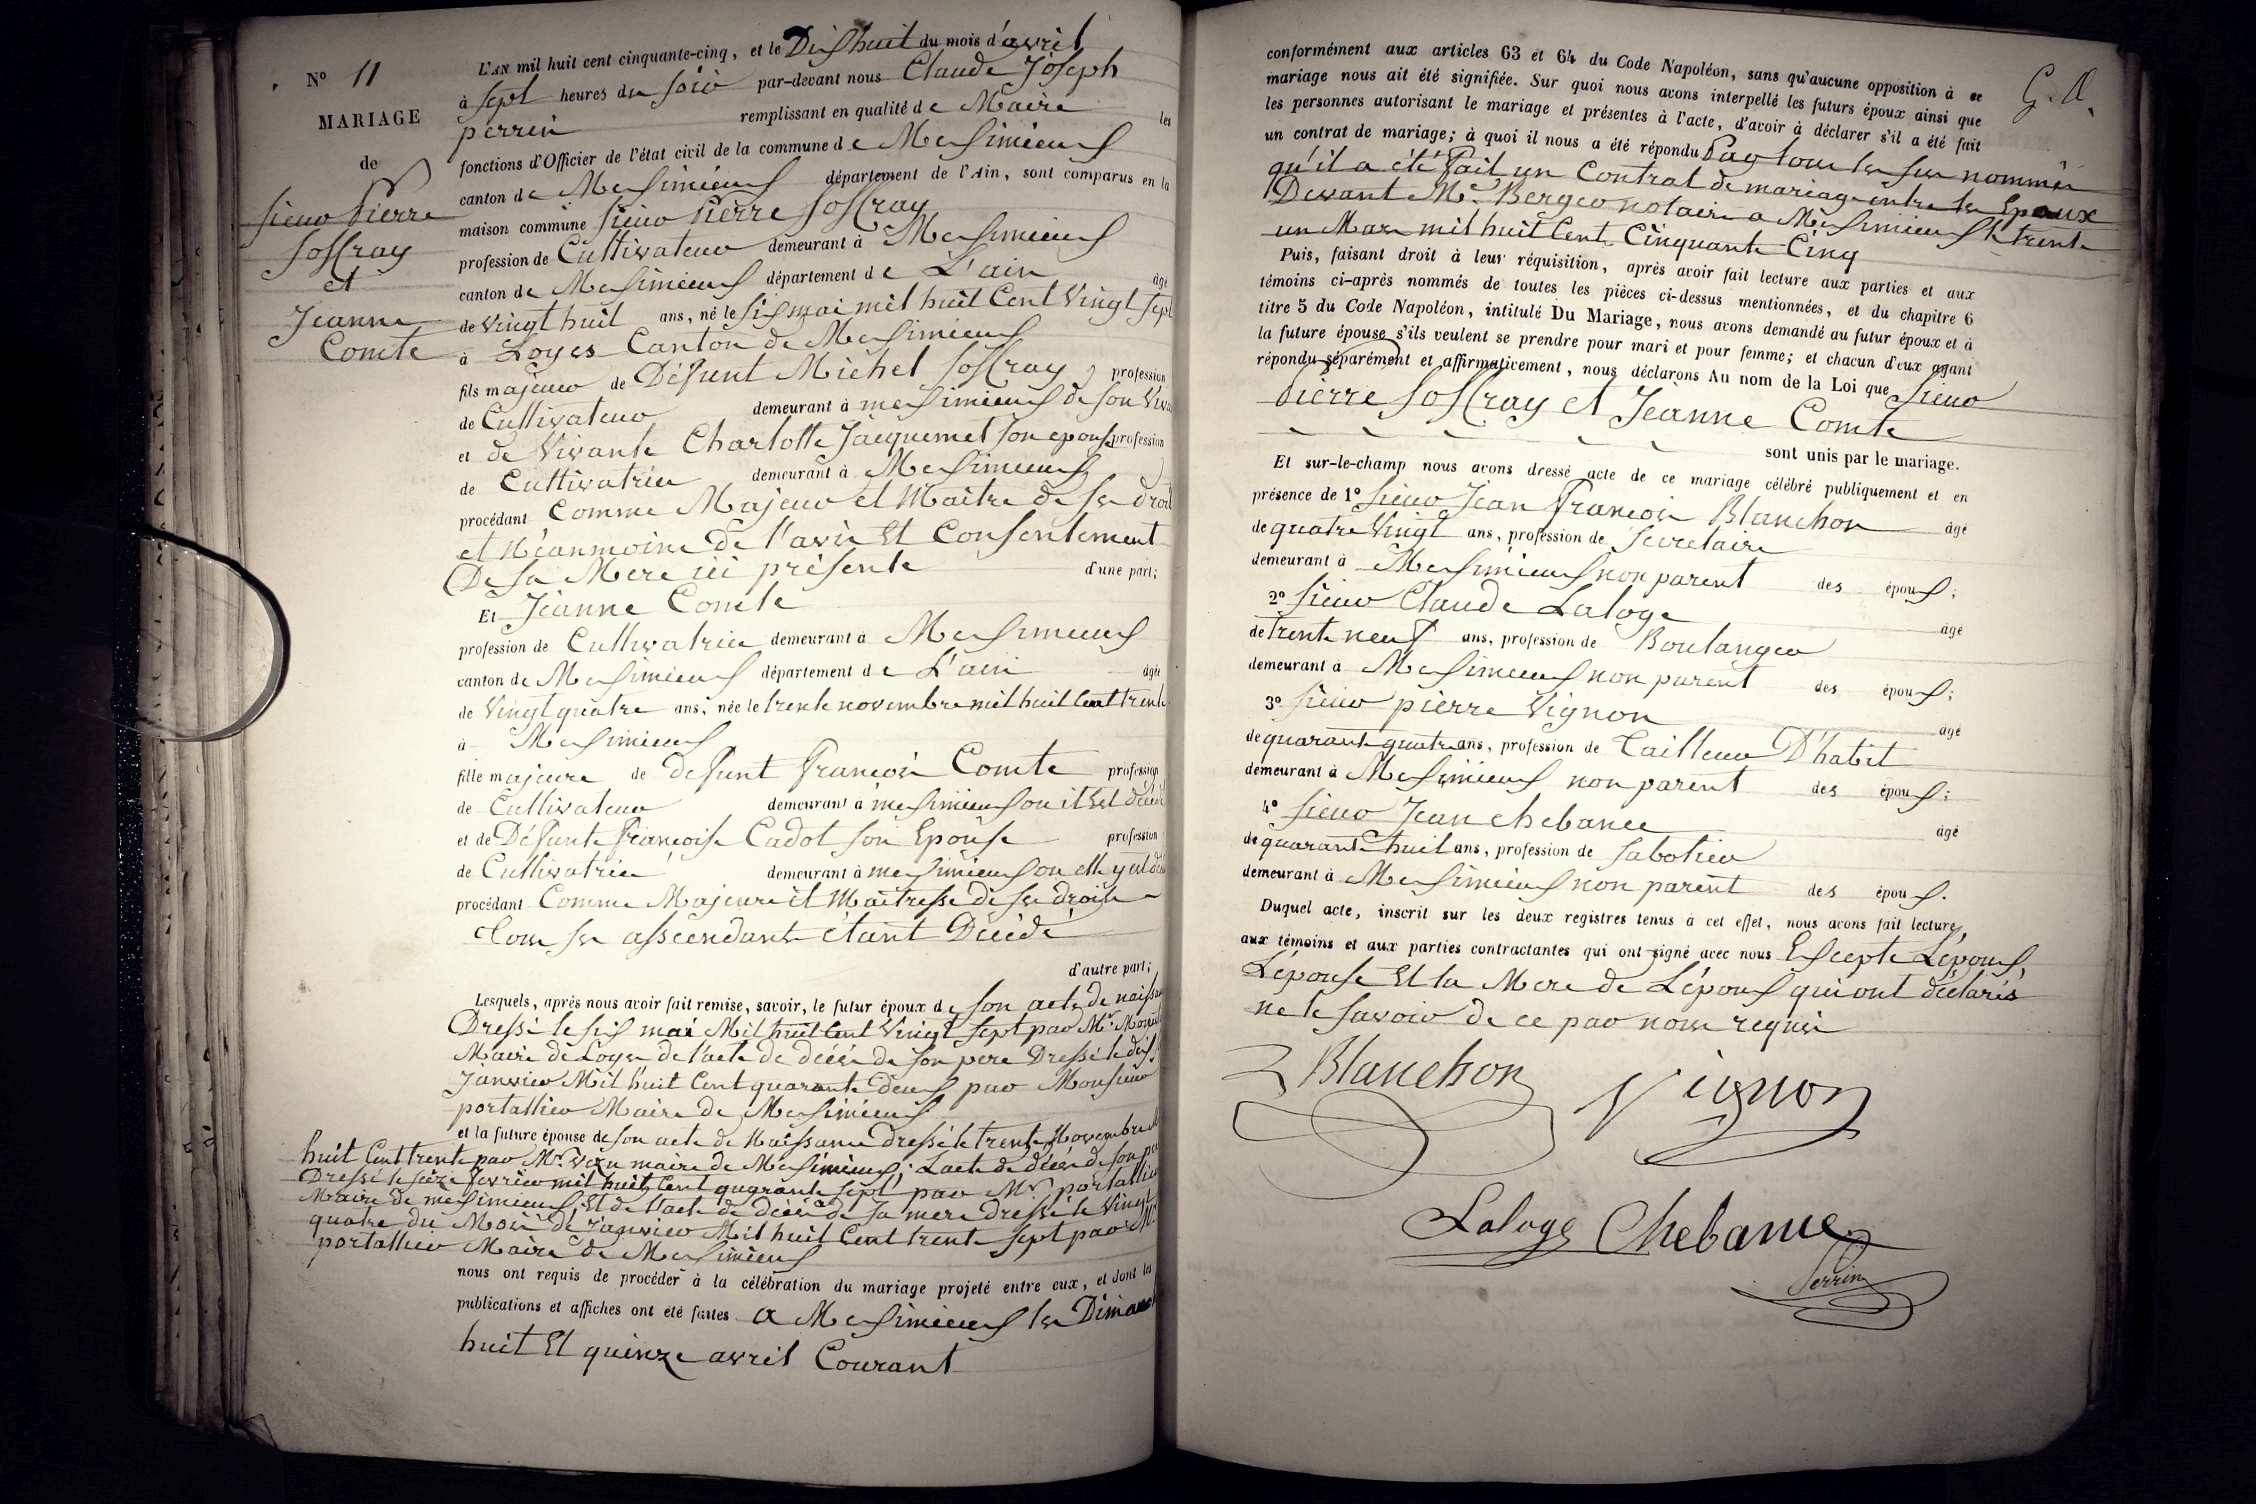 N° 11
MARIAGE
de
Sieur Pierre
Joffray
et
Jeanne
Comte
L'AN mil huit cent cinquante-cinq, et le Dix huit du mois d'avril
à Sept heures du Soir par-devant nous Claude Joseph
perrin remplissant en qualité de Maire les
fonctions d'Officier de l'état civil de la commune de Meximieux
canton de Meximieux département de l'Ain, sont comparus en la
maison commune Sieur Pierre Joffray
profession de Cultivateur demeurant à Meximieux
canton de Meximieux département de L'ain âgé
de vingt huit ans, né le Six mai mil huit Cent Vingt Sept
à Loyes Canton de Meximieux
fils majeur de Défunt Michel Joffray, profession
de Cultivateur demeurant à meximieux de son Viva
et de Vivante Charlotte Jacquemet son epouse profession
de Cultivatrice demeurant à Meximieux
procédant Comme Majeur et Maitre de ses droit
et Néanmoins De l'avis Et Consentement
De sa Mere ici présente d'une part;
Et Jeanne Comte
profession de Cultivatrice demeurant à Meximieux
canton de Meximieux département de L'ain âgée
de Vingt quatre ans, née le trente novembre mil huit Cent trente
à Meximieux
fille majeure de defunt François Comte profession
de Cultivateur demeurant à meximieux ou il Est décédé
et de Défunte Françoise Cadot son Epouse profession
de Cultivatrice demeurant à meximieux ou elle y est
procédant Comme Majeure et Maitresse de ses droits
Tous ses asscendants étant Décédé
d'autre part;
Lesquels, après nous avoir fait remise, savoir, le futur époux de son acte de naissan
Dressé le six mai Mil huit Cent Vingt sept par Mr.
Maire de Loyes de l'acte de décès de son pere Dressé le dix
Janvier Mil huit Cent quarante deux par Monsieur
portallier Maire de Meximieux
et la future épouse de son acte de Naissance dressé le trente Novembre
huit Cent trente par Mr. maire de Meximieux; L'acte de décès de son
Dressé le seize fevrier mil huit Cent quarante sept par Mr portallier
Maire de meximieux; Et de l'acte de décès de sa mere dressé le Vingt
quatre du Mois de Janvier Mil huit Cent trente sept par Mr
portallier Maire de Meximieux
nous ont requis de procéder à la célébration du mariage projeté entre eux, et dont les
publications et affiches ont été faites à Meximieux les Dimanch
huit Et quinze avril Courant
G. A.
conformément aux articles 63 et 64 du Code Napoléon, sans qu'aucune opposition à ce
mariage nous ait été signifiée. Sur quoi nous avons interpellé les futurs époux ainsi que
les personnes autorisant le mariage et présentes à l'acte, d'avoir à déclarer s'il a été fait
un contrat de mariage; à quoi il nous a été répondu Par tous les sus nommés
qu'il a été fait un Contrat de mariage entre les Epoux
Devant Me. Berger notaire a Meximieux le trente
un Mars mil huit Cent Cinquante Cinq
Puis, faisant droit à leur réquisition, après avoir fait lecture aux parties et aux
témoins ci-après nommés de toutes les pièces ci-dessus mentionnées, et du chapitre 6
titre 5 du Code Napoléon, intitulé Du Mariage, nous avons demandé au futur époux et à
la future épouse s'ils veulent se prendre pour mari et pour femme; et chacun d'eux ayant
répondu séparément et affirmativement, nous déclarons Au nom de la Loi que Sieur
Pierre Joffray et Jeanne Comte
sont unis par le mariage.
Et sur-le-champ nous avons dressé acte de ce mariage célébré publiquement et en
présence de 1° Sieur Jean François Blanchon âgé
de quatre Vingt ans, profession de Secretaire
demeurant à Meximieux non parent des époux;
2° Sieur Claude Laloge âgé
de trente neuf ans, profession de Boulanger
demeurant à Meximieux non parent des époux;
3° Sieur pierre Vignon âgé
de quarante quatre ans, profession de Tailleur D'habit
demeurant à Meximieux non parent des époux;
4° Sieur Jean Chebance âgé
de quarante huit ans, profession de Sabotier
demeurant à Meximieux non parent des époux.
Duquel acte, inscrit sur les deux registres tenus à cet effet, nous avons fait lecture
aux témoins et aux parties contractantes qui ont signé avec nous Excepte L'époux,
L'épouse Et la Mere de L'époux qui ont déclarés
ne le savoir de ce par nous requis
Blanchon Vignon
Laloge Chebance
Perrin